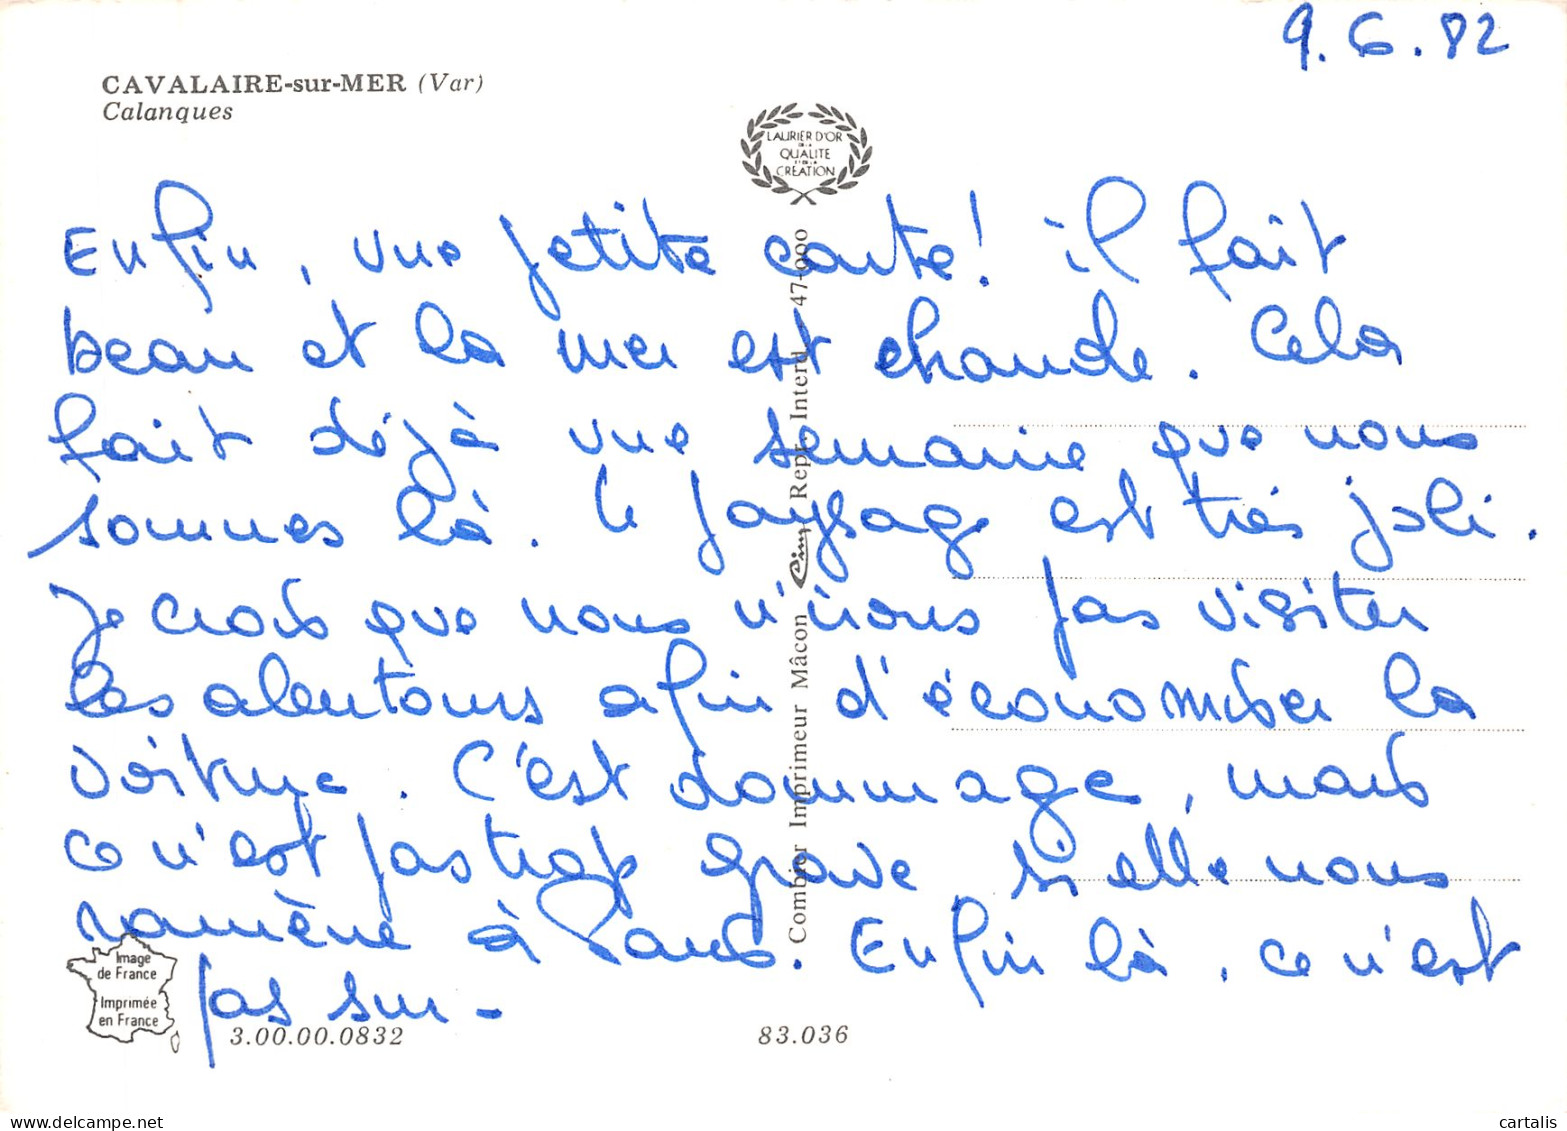 9.6.82
CAVALAIRE-sur-MER (Var)
Calanques
LAURIER D'OR
DE LA
QUALITE
ET DE LA
CRÉATION
Enfin, une petite carte! il fait
beau et la mer est chaude. Cela
fait déjà une semaine que nous
sommes là. Le paysage est très joli.
Je crois que nous n'irons pas visiter
les alentours afin d'économiser la
voiture. C'est dommage, mais
ce n'est pas trop grave si elle nous
ramène à Paris. Enfin là, ce n'est
pas sur -
Combier Imprimeur Mâcon Cim Repr. Interd. 47-000
Image
de France
Imprimée
en France
3.00.00.0832
83.036
www.delcampe.net
cartalis